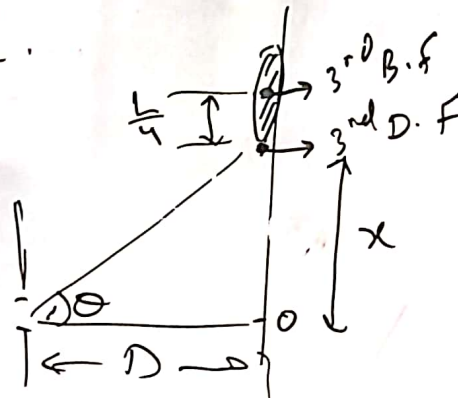 3rd B.f
L/4
3rd D.F
x
θ
O
D